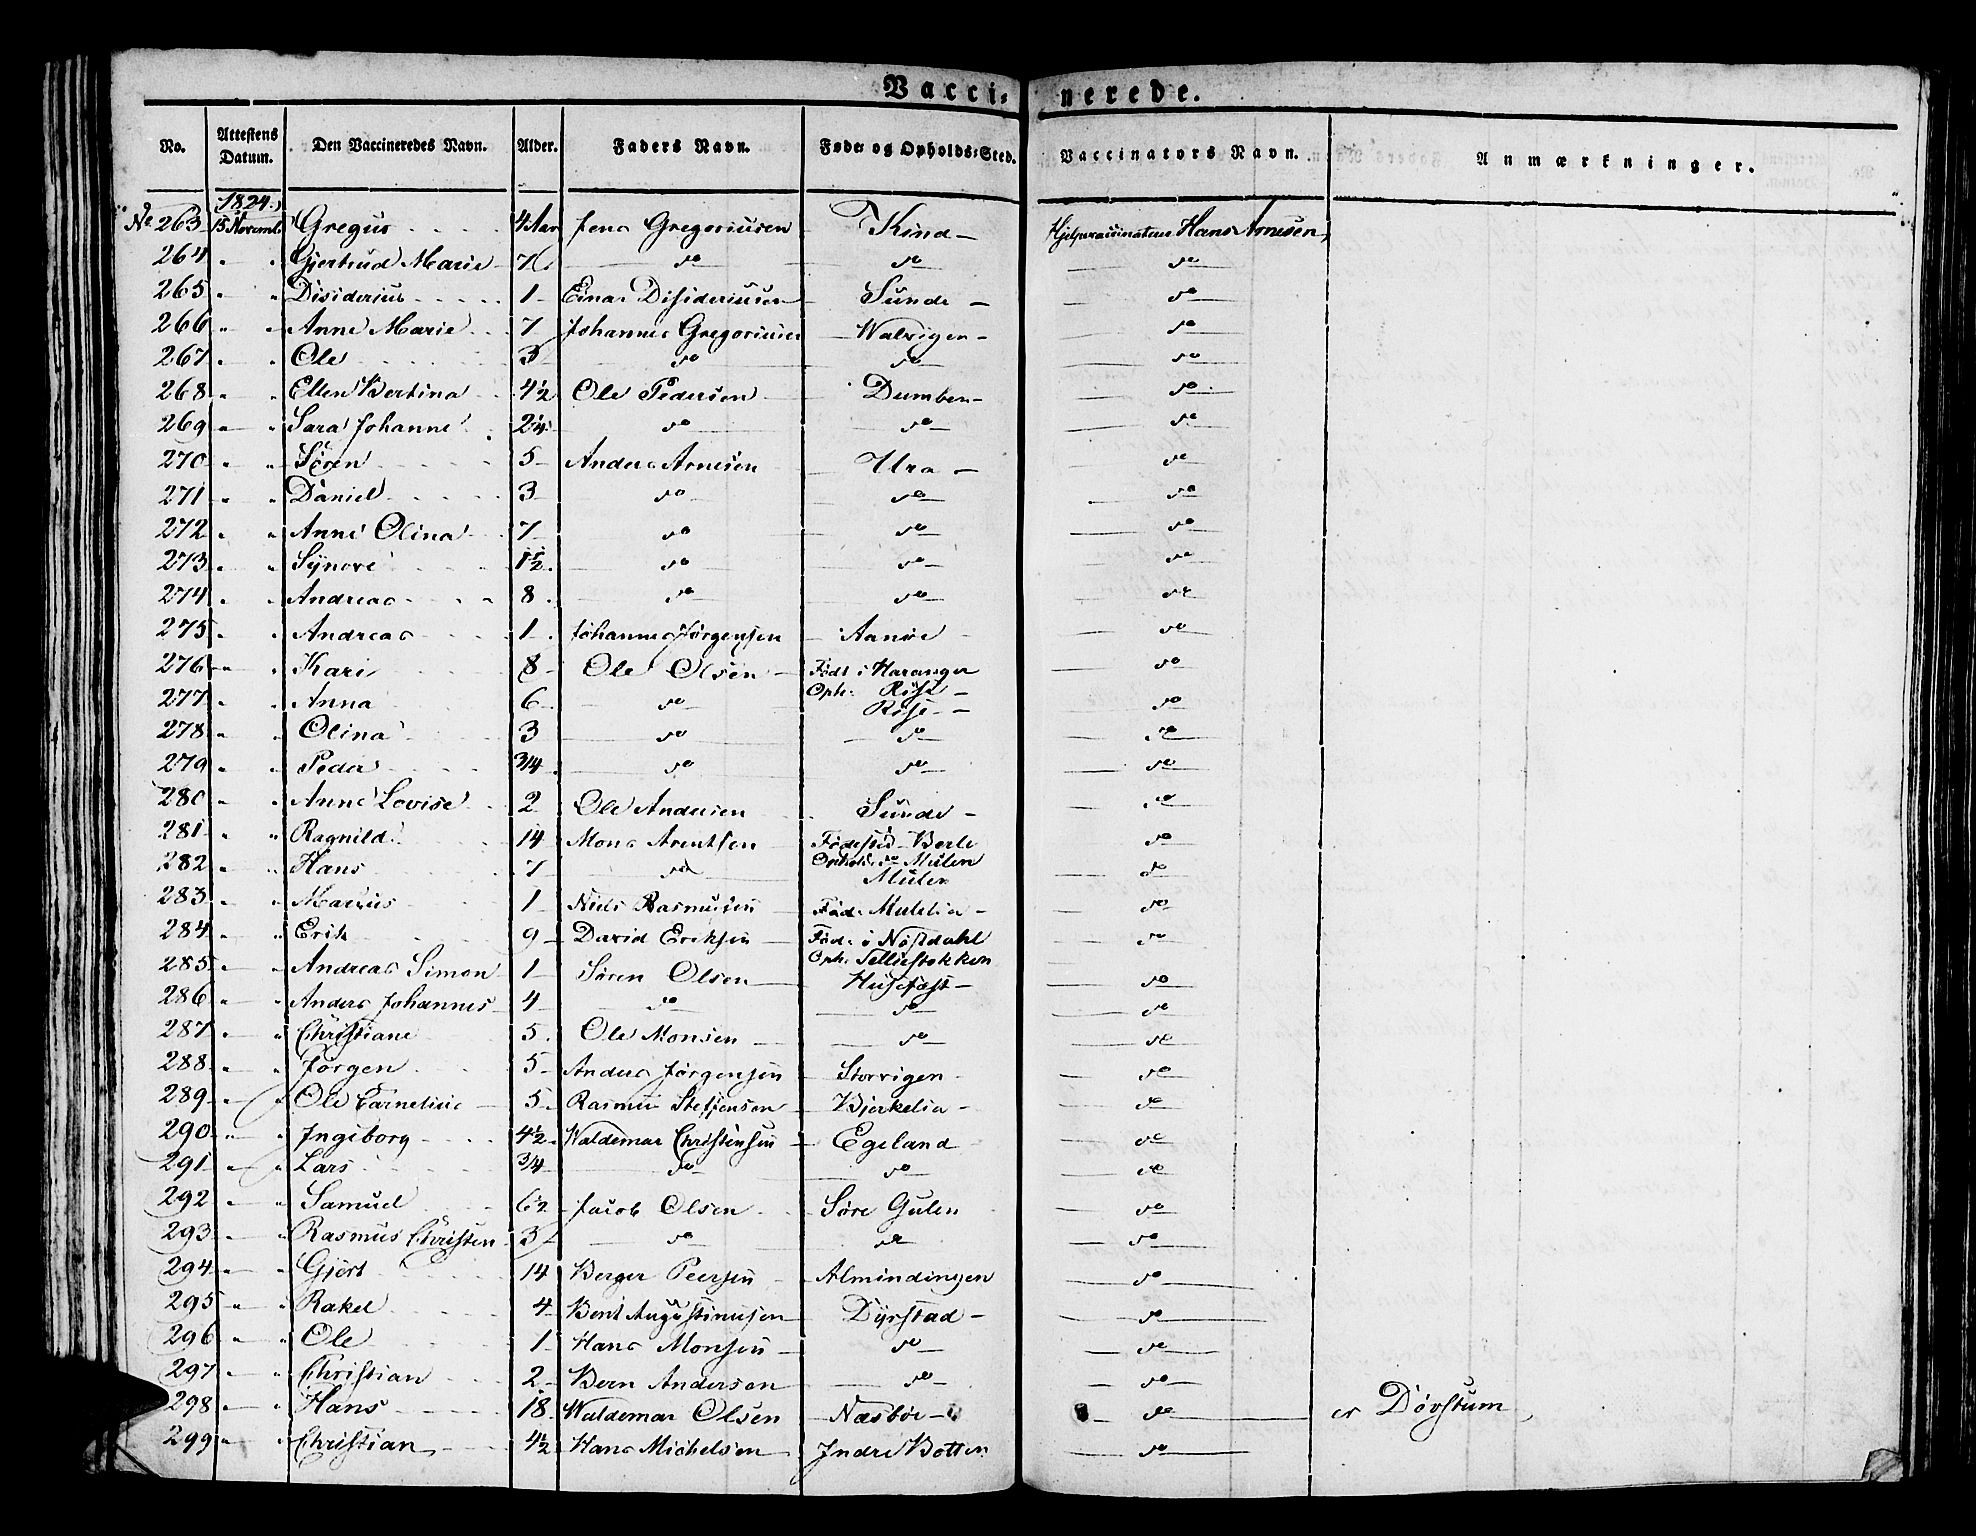 Vaccinerede.
No. Attestens Datum. Den Vaccineredes Navn. Alder. Faders Navn. Føde- og Opholds-Sted. Vaccinators Navn. Anmærkninger.
1824.
No 263 15 Novemb. Gregus 4 Aar Jens Gregoriusen Kind Hans Arnesen
264 " " Gjertrud Marie 7 do do do
265 " " Disiderius 1 Einar Disideriusen Sunde do
266 " " Anne Marie 7 Johannes Gregoriusen Walvigen do
267 " " Ole 3 do do do
268 " " Ellen Bertina 4½ Ole Pedersen Dumben do
269 " " Sara Johanne 2¼ do do do
270 " " Sören 5 Anders Arnesen Ura do
271 " " Daniel 3 do do do
272 " " Anne Olina 7 do do do
273 " " Synove 1½ do do do
274 " " Andreas 8 do do do
275 " " Andreas 1 Johannes Jørgensen Aanøe do
276 " " Kari 8 Ole Olsen Födt i Haranger do
Oph: Röise
277 " " Anna 6 do Röise do
278 " " Olina 3 do do do
279 " " Peder 3/4 do do do
280 " " Anne Lovise 2 Ole Andersen Sunde do
281 " " Ragnild 14 Mons Arentsen Födested Berle do
Ophold do Mulen
282 " " Hans 7 do Mulen do
283 " " Marius 1 Niels Rasmusen Föd: Mulelia do
284 " " Erik 9 David Eriksen Föd: i Nöstdahl do
Oph: Selliestokken
285 " " Andreas Simon 1 Sören Olsen Husefast do
286 " " Anders Johannes 4 do do do
287 " " Christiane 5 Ole Monsen do do
288 " " Jørgen 5 Anders Jørgensen Storvigen do
289 " " Ole Cornelius 5 Rasmus Steffensen Bjerkelia do
290 " " Ingeborg 4½ Waldemar Christensen Egeland do
291 " " Lars 3/4 do do do
292 " " Samuel 6½ Jacob Olsen Søre Gulen do
293 " " Rasmus Christen 3 do do do
294 " " Gjert 14 Berger Peersen Almindingen do
295 " " Rakel 4 Bent Augustinusen Dyrstad do
296 " " Ole 1 Hans Monsen do do
297 " " Christian 2 Bern Andersen do do
298 " " Hans 18 Waldemar Olsen Næsböe do er Dövstum
299 " " Christian 4½ Hans Michelsen Indre Botten do